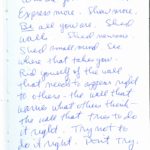 Express more. Show more.
Be all you are. Shed
walls. Shed nervous.
Shed small mind. See
where that takes you.
Rid yourself of the wall
that needs to appear right
to others - the wall that
worries what others think -
the wall that tries to do
it right. Try not to
do it right. Don't Try.